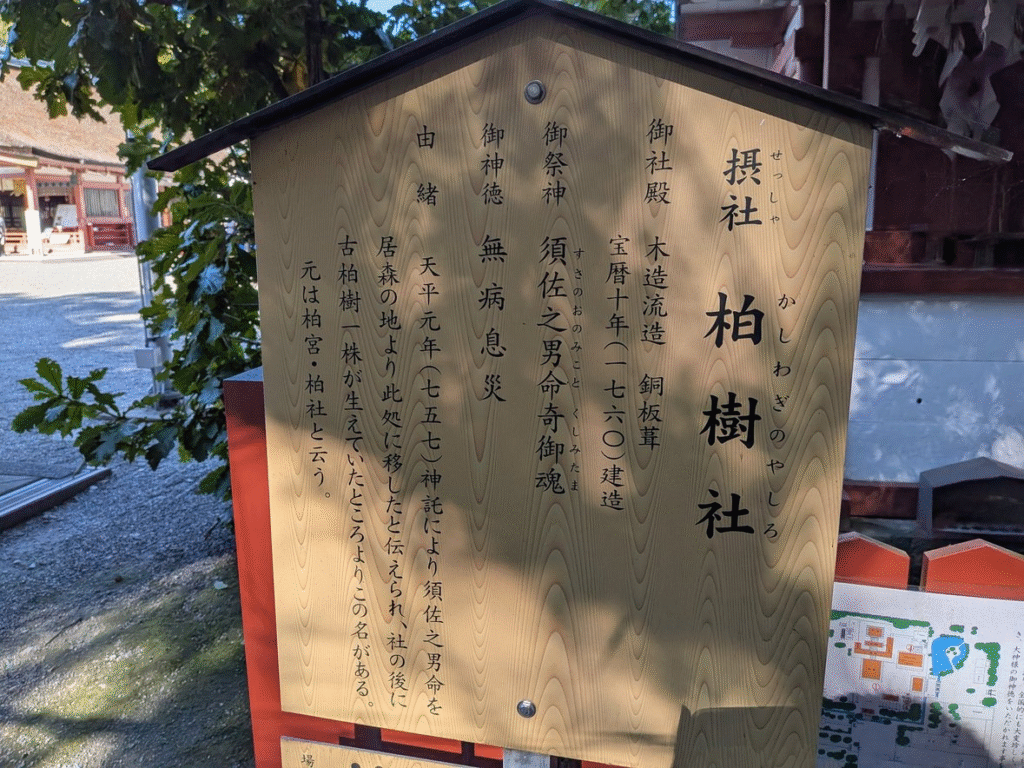 せっしゃ かしわぎのやしろ
摂社 柏樹社
御社殿 木造流造 銅板葺
宝暦十年(一七六〇)建造
すさのおのみこと くしみたま
御祭神 須佐之男命奇御魂
御神徳 無病息災
由緒 天平元年(七五七)神託により須佐之男命を
居森の地より此処に移したと伝えられ、社の後に
古柏樹一株が生えていたところよりこの名がある。
元は柏宮・柏社と云う。
場